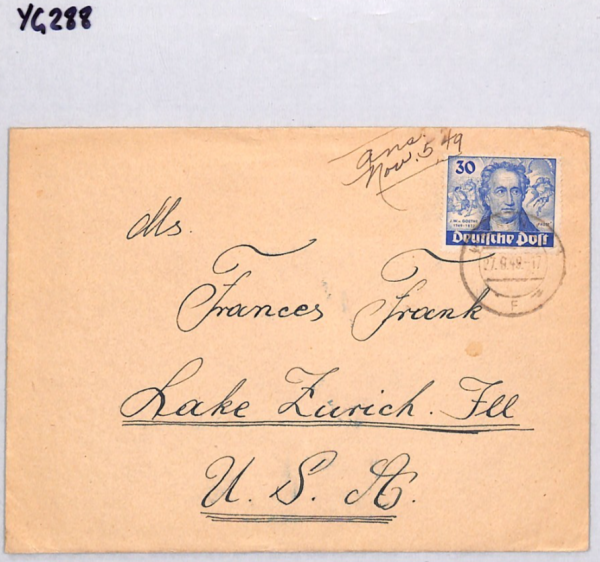 YG288
ans.
Nov. 5 49
30
Deutsche Post
27.9.49.-17
F
Ms.
Frances Frank
Lake Zurich. Ill
U. S. A.